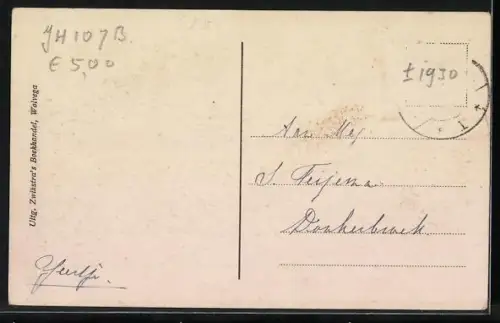 JH107B
€ 5,00
± 1930
Uitg. Zwikstra's Boekhandel, Wolvega
Aan Mej
S. Feijema
Donkerbroek.